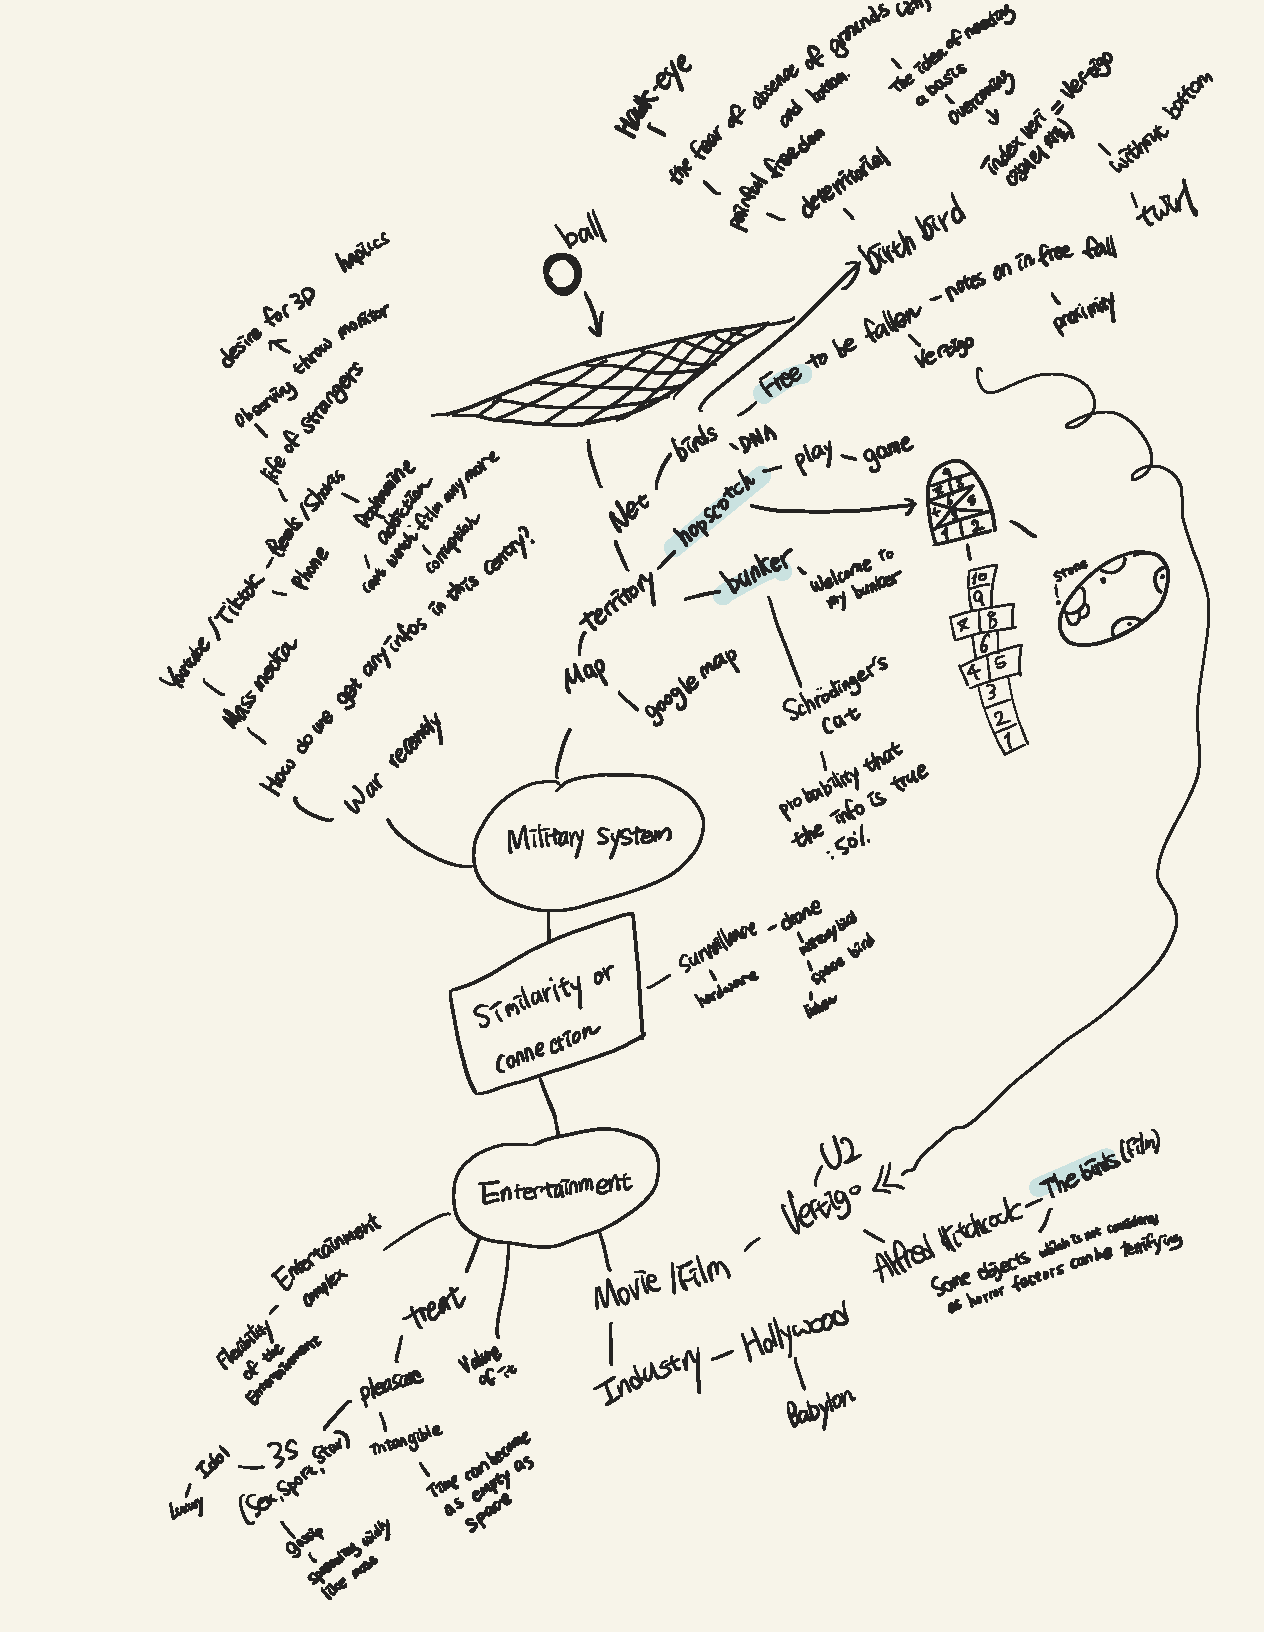 Hawk-eye
the fear of absence of grounds
and bottom.
The idea of needing
a basis
overcoming
index veri = Vertigo
without bottom
painful freedom
deterritorial
twirl
ball
birth bird
haptics
desire for 3D
observing throw monitor
life of strangers
Free to be fallen - notes on in free fall
Vertigo
proximity
birds
DNA
hopscotch
play
game
Net
Reels/Shorts
Dopamine
addiction
can't watch film anymore
corruption
Youtube/Tiktok
Phone
Mass media
How do we get any infos in this century?
War recently
territory
bunker
Welcome to
my bunker
Map
google map
Schrödinger's
cat
probability that
the info is true
: 50%.
9
7 8
4 5
1 2
10
9
7 8
6
4 5
3
2
1
Stone
Military system
Similarity or
connection
Surveillance
hardware
drone
space bird
Entertainment
U2
Vertigo
Alfred Hitchcock
The birds (film)
Some objects which is not considered
as horror factors can be terrifying
Movie/Film
Industry
Hollywood
Babylon
Entertainment
complex
Flexibility
of the
Entertainment
treat
Value
of it
pleasure
Intangible
Time can become
as empty as
space
3S
(Sex, Sport, Star)
Idol
gossip
spreading wildly
like